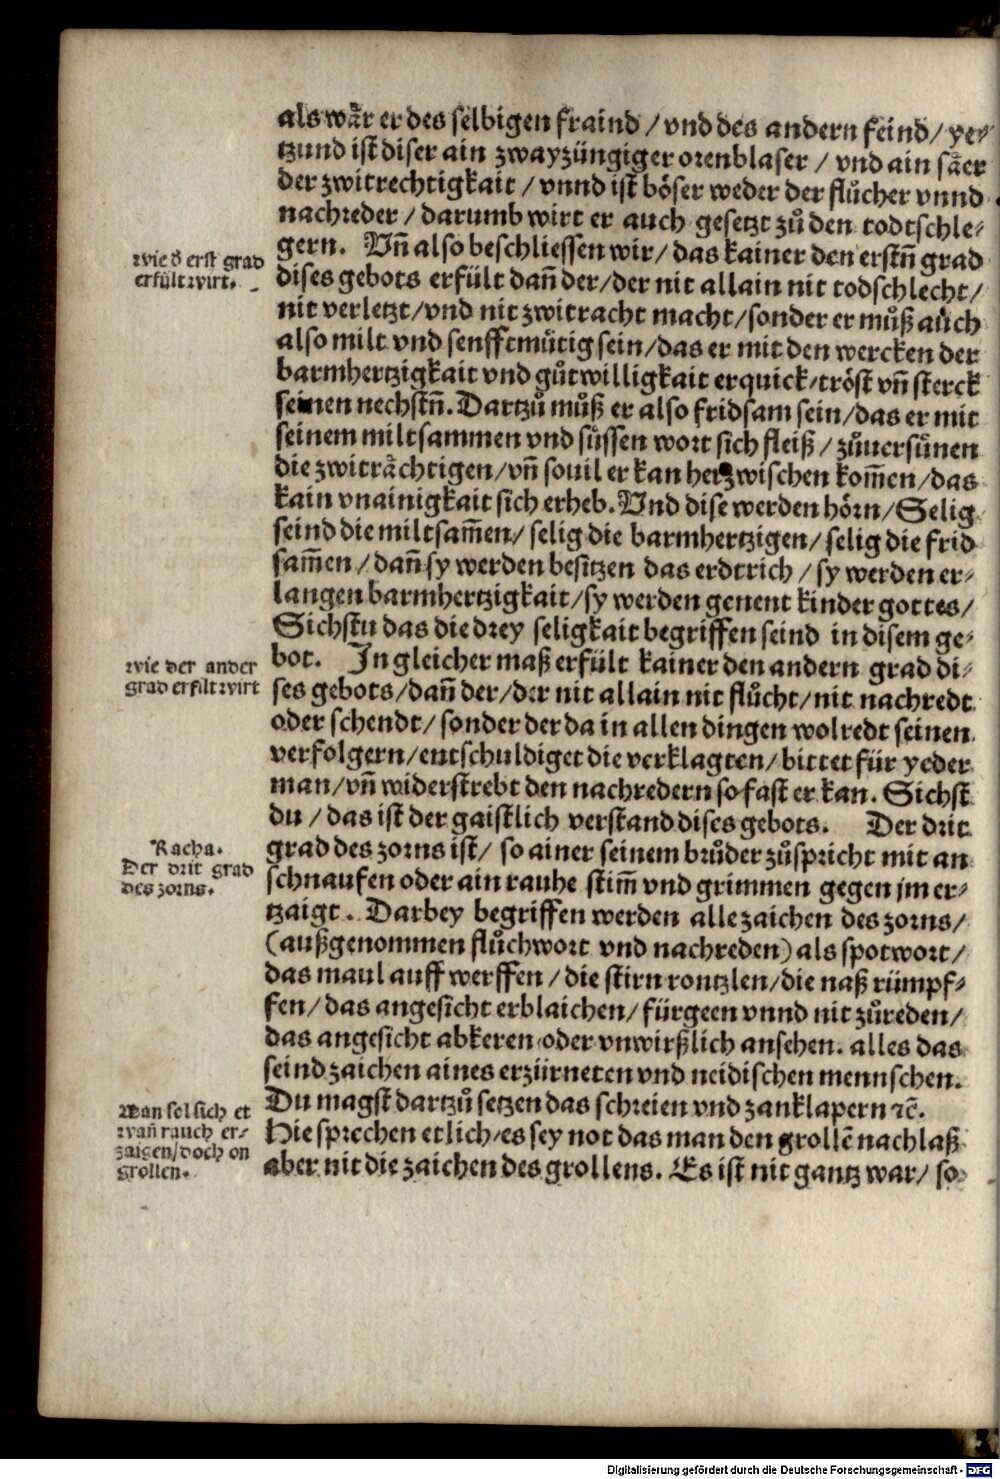 als wår er des selbigen fraind / vnd des andern feind / ye⸗
tzund ist diser ain zwayzüngiger orenblaser / vnd ain såer
der zwitrechtigkait / vnnd ist böser weder der flůcher vnnd
nachreder / darumb wirt er auch gesetzt zů den todtschle⸗
gern. Vñ also beschliessen wir / das kainer den ersten̄ grad
wie d̕ erst grad
erfült wirt.
dises gebots erfült dañ der / der nit allain nit todschlecht /
nit verletzt / vnd nit zwitracht macht / sonder er můß auch
also milt vnd senfftmütig sein / das er mit den wercken der
barmhertzigkait vnd gůtwilligkait erquick / tröst vñ sterck
seinen nechstñ. Dartzů můß er also fridsam sein / das er mit
seinem miltsammen vnd süssen wort sich fleiß / zůuersünen
die zwiträchtigen / vñ souil er kan herzwischen kom̄en / das
kain vnainigkait sich erheb. Vnd dise werden hörn / Selig
seind die miltsam̄en / selig die barmhertzigen / selig die frid
sam̄en / dañ sy werden besitzen das erdtrich / sy werden er⸗
langen barmhertzigkait / sy werden genent kinder gottes /
Sichstu das die drey seligkait begriffen seind in disem ge⸗
bot. In gleicher maß erfült kainer den andern grad di⸗
wie der ander
grad erfilt wirt
ses gebots / dañ der / der nit allain nit flůcht / nit nachredt
oder schendt / sonder der da in allen dingen wolredt seinen
verfolgern / entschuldiget die verklagten / bittet für yeder
man / vñ widerstrebt den nachredern so fast er kan. Sichst
du / das ist der gaistlich verstand dises gebots. Der drit
grad des zorns ist / so ainer seinem brůder zůspricht mit an
Racha.
Der drit grad
des zorns.
schnaufen oder ain rauhe stim̄ vnd grimmen gegen jm er⸗
tzaigt. Darbey begriffen werden alle zaichen des zorns /
(außgenommen flůchwort vnd nachreden) als spotwort /
das maul auff werffen / die stirn rontzlen / die naß rümpf⸗
fen / das angesicht erblaichen / fürgeen vnnd nit zůreden /
das angesicht abkeren oder vnwirßlich ansehen. alles das
seind zaichen aines erzürneten vnd neidischen mennschen.
Du magst dartzů setzen das schreien vnd zanklapern ⁊c̄.
Man sol sich et
wañ rauch er⸗
zaigen / doch on
grollen.
Hie sprechen etlich / es sey not das man den grollē nachlaß
aber nit die zaichen des grollens. Es ist nit gantz war / so
Digitalisierung gefördert durch die Deutsche Forschungsgemeinschaft - DFG